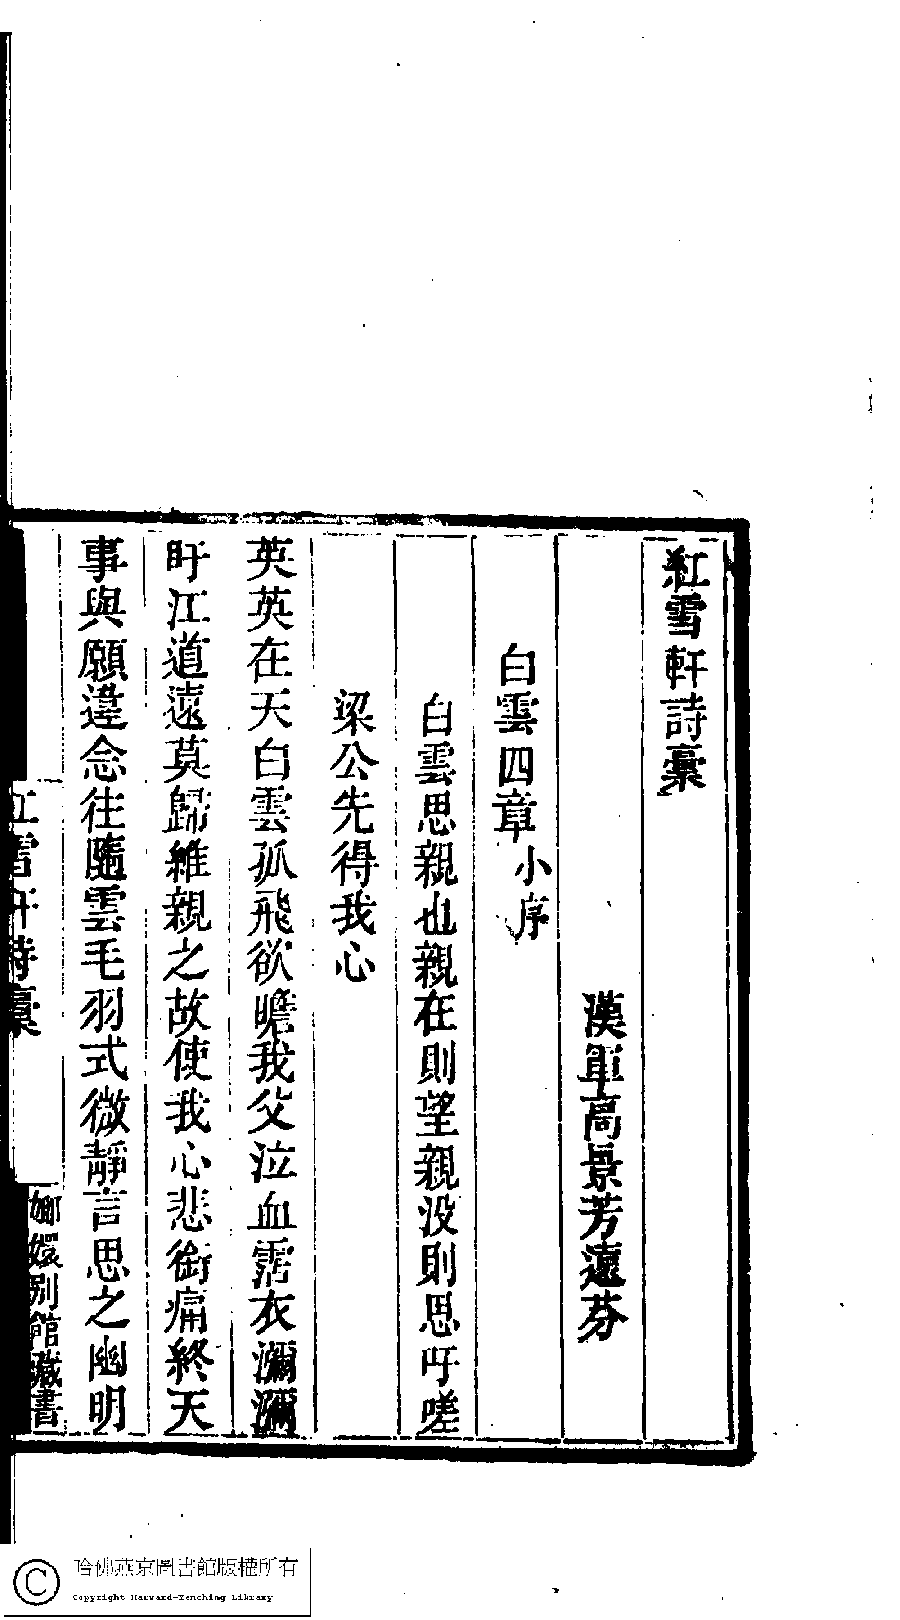 紅雪軒詩稾
漢軍高景芳遠芬
白雲四章小序
白雲思親也親在則望親没則思吁嗟
梁公先得我心
英英在天白雲孤飛欲瞻我父泣血霑衣瀰瀰
盱江道遠莫歸維親之故使我心悲銜痛終天
事與願違念往隨雲毛羽式微靜言思之幽明
紅雪軒詩稾
嫏嬛別館藏書
哈佛燕京圖書館版權所有
Copyright Harvard-Yenching Library